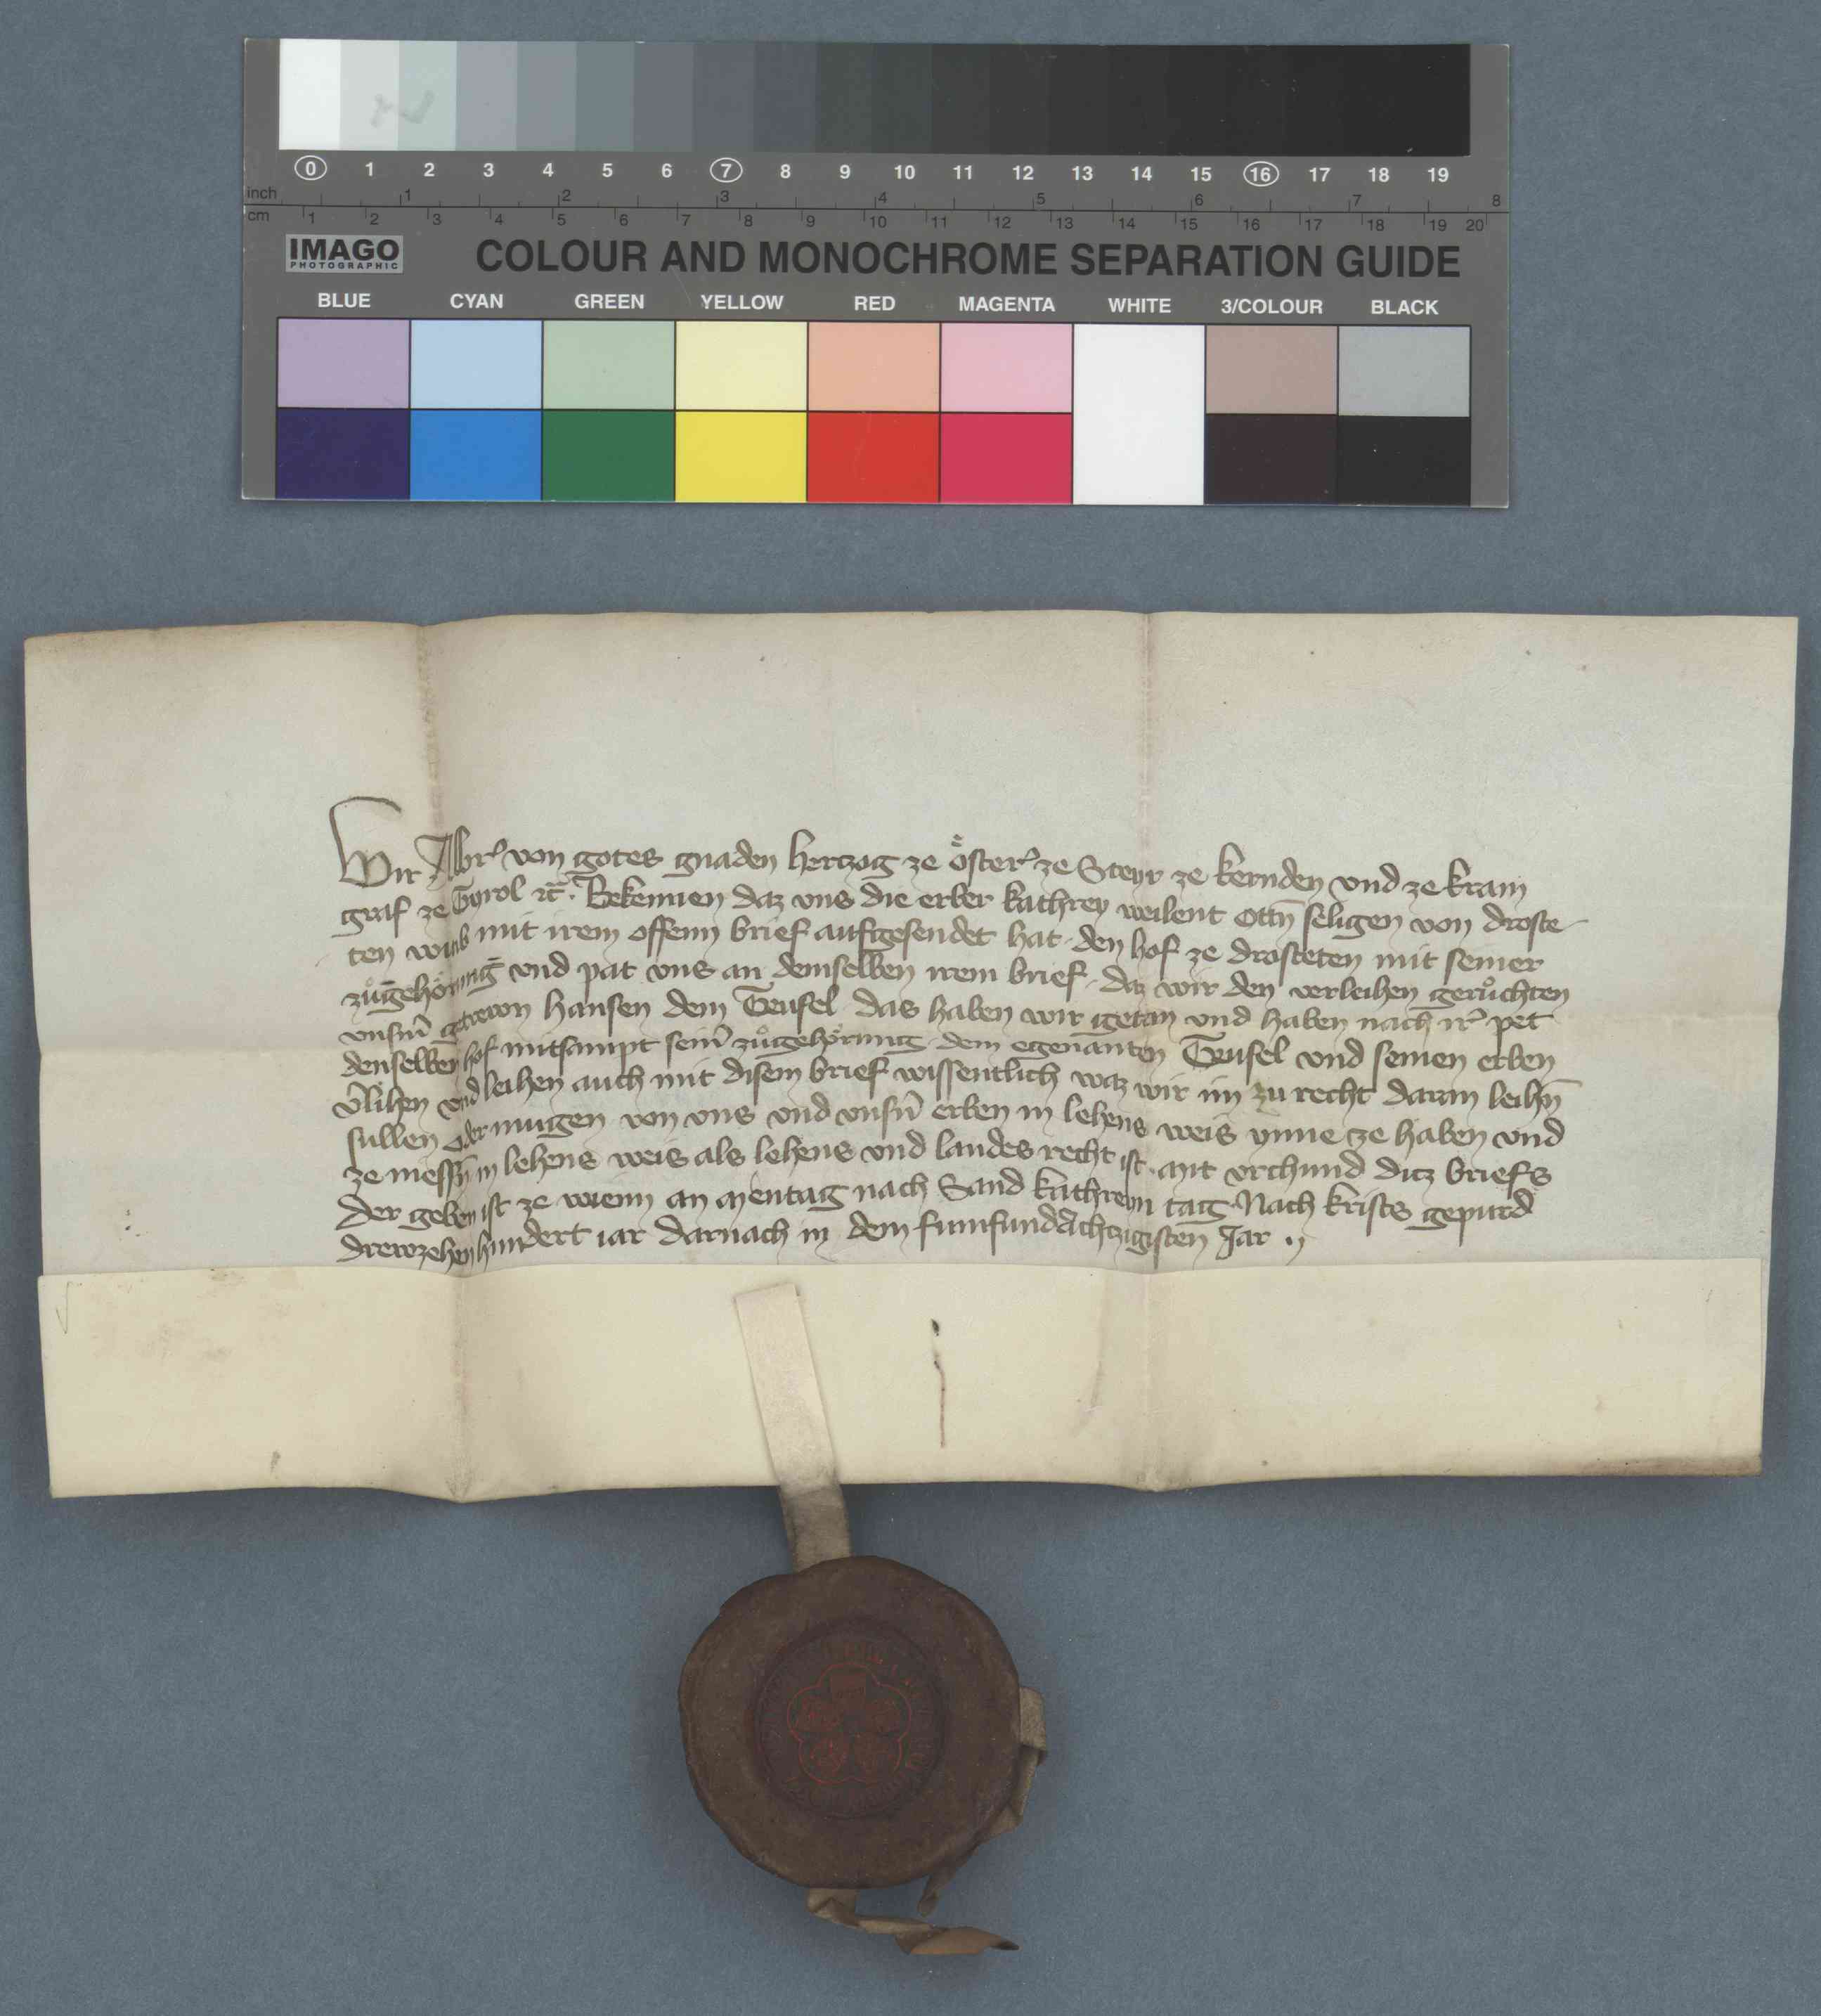 0 1 2 3 4 5 6 7 8 9 10 11 12 13 14 15 16 17 18 19
inch 1 2 3 4 5 6 7 8
cm 1 2 3 4 5 6 7 8 9 10 11 12 13 14 15 16 17 18 19 20
IMAGO
PHOTOGRAPHIC
COLOUR AND MONOCHROME SEPARATION GUIDE
BLUE CYAN GREEN YELLOW RED MAGENTA WHITE 3/COLOUR BLACK
Wir Albr᾽ von gotes gnaden hertzog ze Oͤster᾽ ze Steyr ze kernden vnd ze krain
graf ze Tyrol ꝛc̄. Bekennen daz vns die erber kathrey weilent Ottn̄ seligen von droste-
ten wib mit irem offenn brief aufgesendet hat den hof ze drosteten mit seiner
zuͦgehoͤrung vnd pat vns an demselben irem brief daz wir den verleihen geruͦchten
vnsm̄ getrewn hansen dem Teufel das haben wir getan vnd haben nach ir᾽ pet
denselben hof mitsampt sein̄ zuͦgehoͤrung dem egenanten Teufel vnd seinen erben
v̄lihen vnd leihen auch mit disem brief wissentlich waz wir im zu recht daran leihn̄
sullen oder mugen von vns vnd vnsn̄ erben in lehens weis ynne ze haben vnd
ze niessn̄ in lehens weis als lehens vnd landes recht ist. mit vrchund ditz briefs
der geben ist ze wienn an Mentag nach Sand kathrein tag Nach krists gepurd
drewzehenhundert iar darnach in dem fumfundAchtzigisten Jar